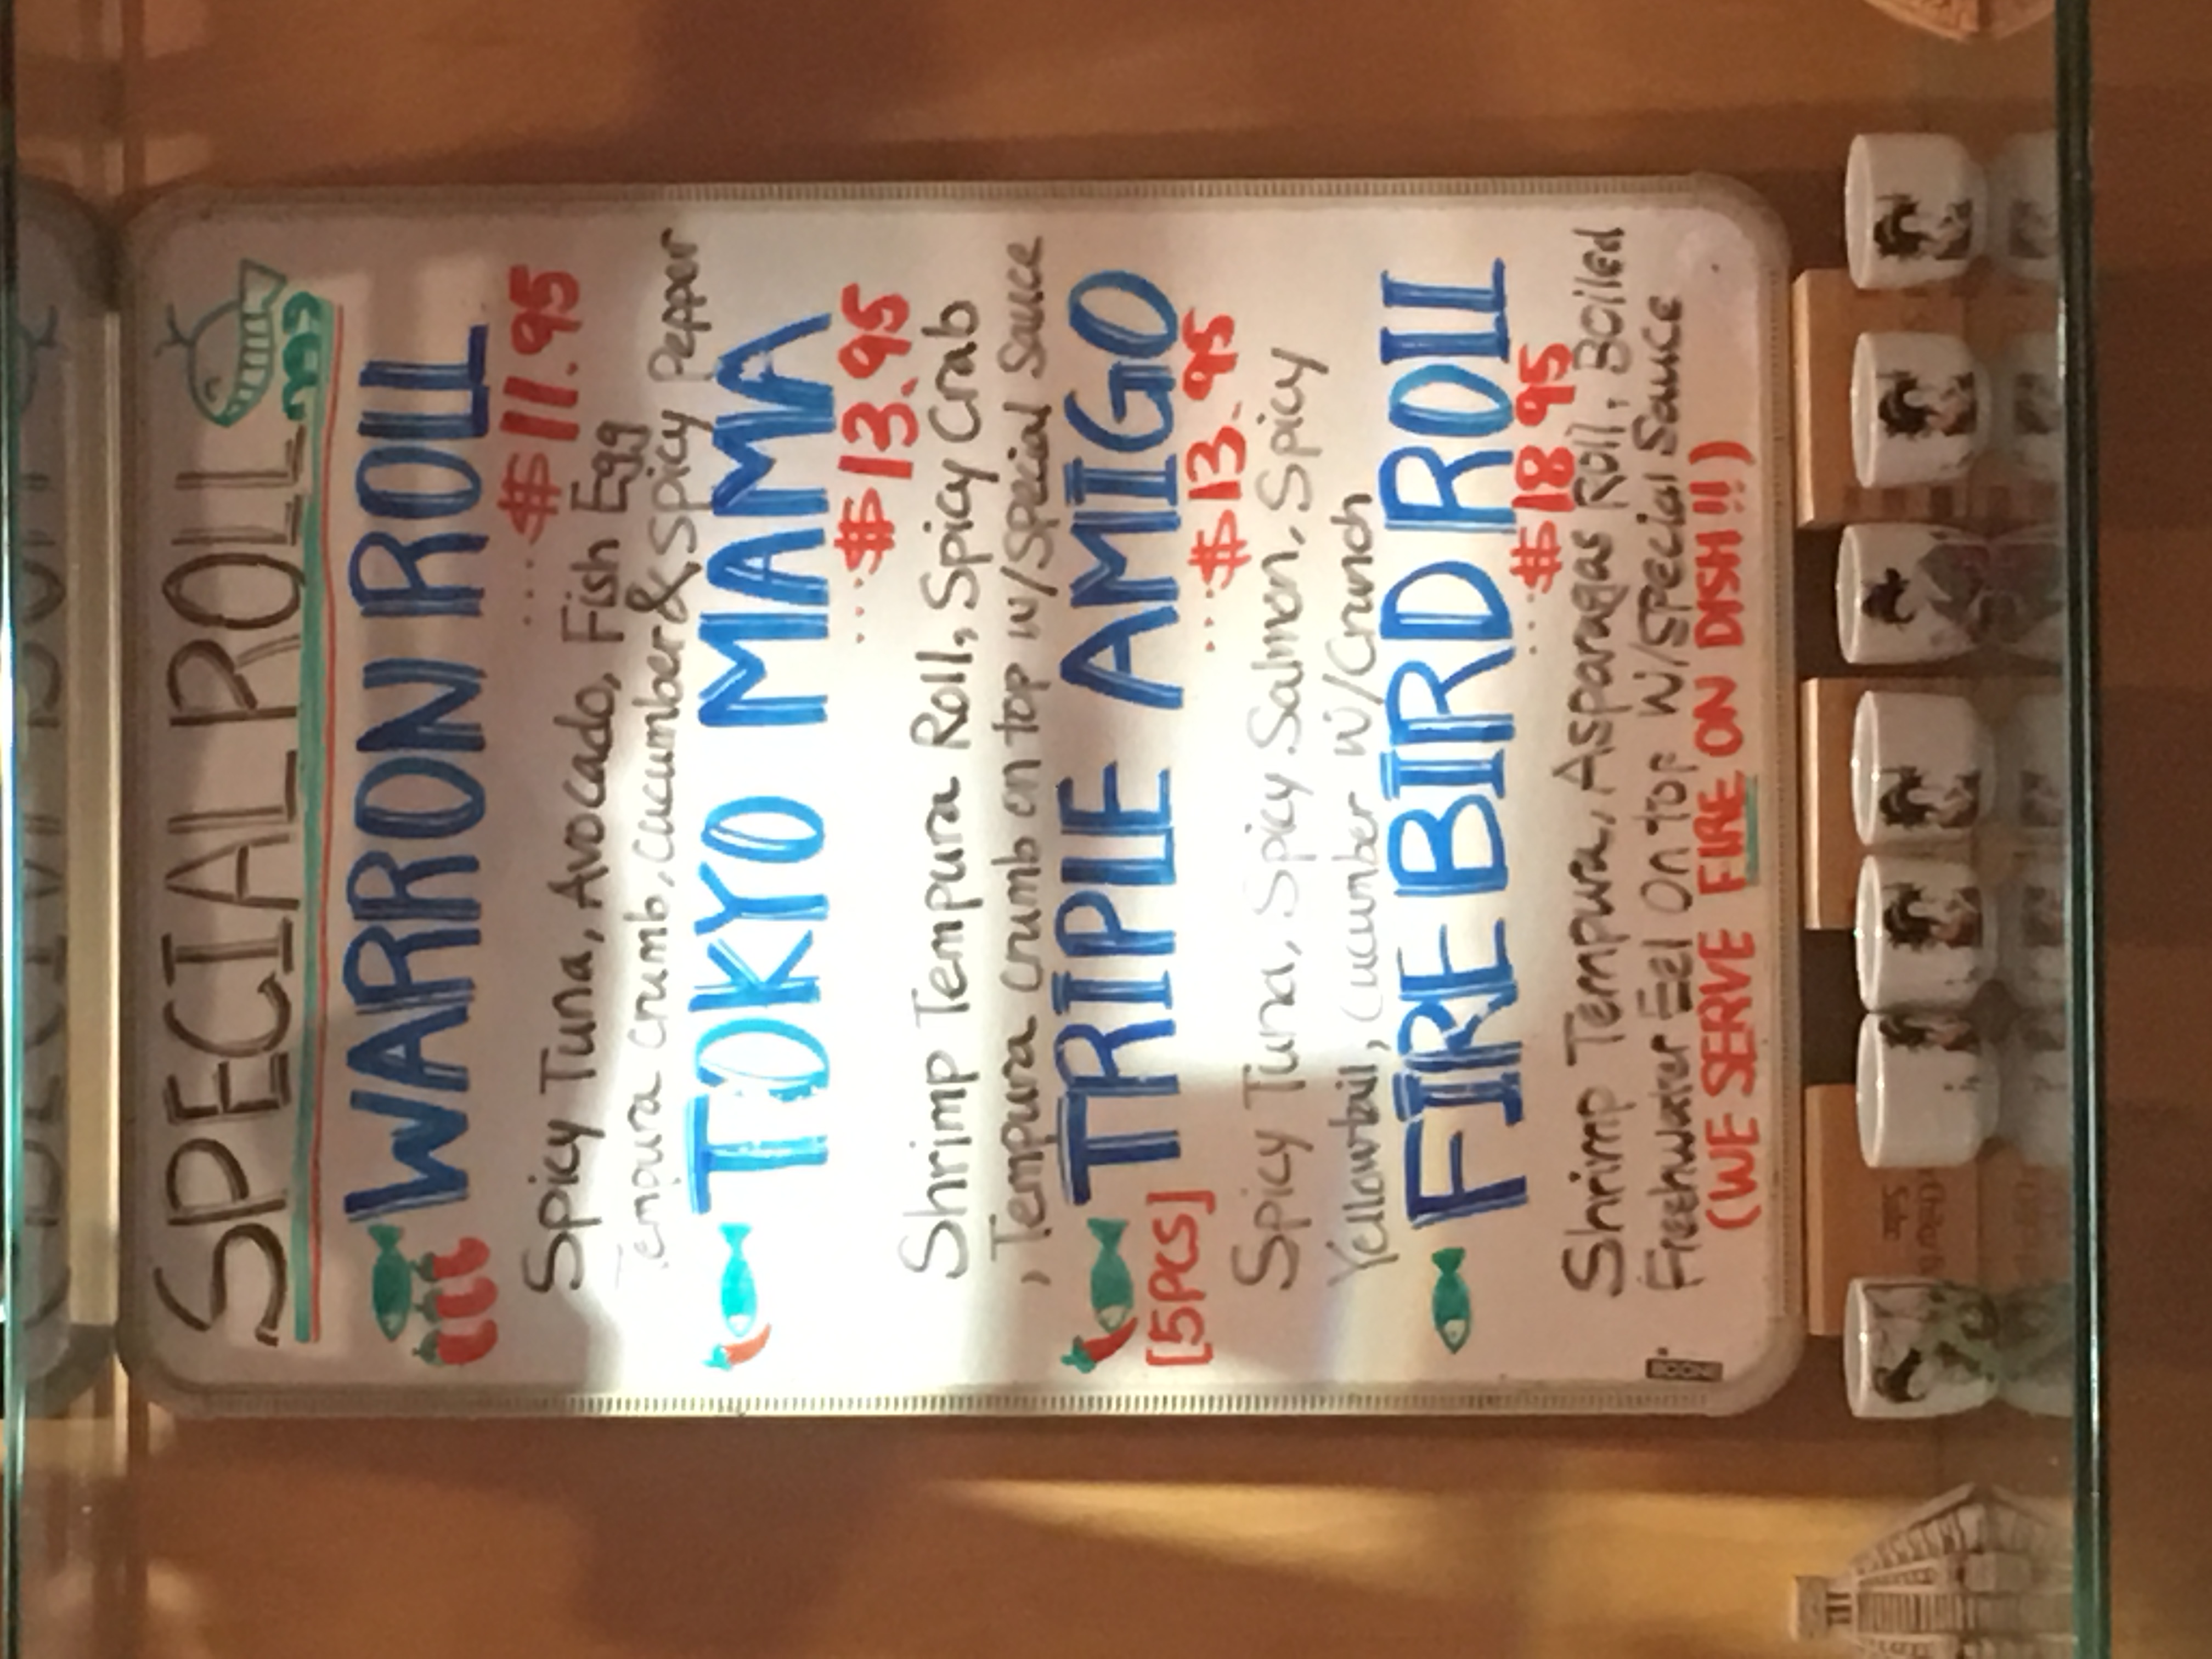 SPECIAL ROLL
WARRON ROLL
...$11.95
Spicy Tuna, Avocado, Fish Egg
Tempura crumb, cucumber & Spicy Pepper
TOKYO MAMA
...$13.95
Shrimp Tempura Roll, Spicy Crab
, Tempura crumb on top w/Special Sauce
TRIPLE AMIGO
[5PCS]
...$13.95
Spicy Tuna, Spicy Salmon, Spicy
Yellowtail, Cucumber W/Crunch
FIRE BIRD ROLL
...$18.95
Shrimp Tempura, Asparagas Roll, Boiled
Freshwater Eel On top W/Special Sauce
(WE SERVE FIRE ON DISH!!)